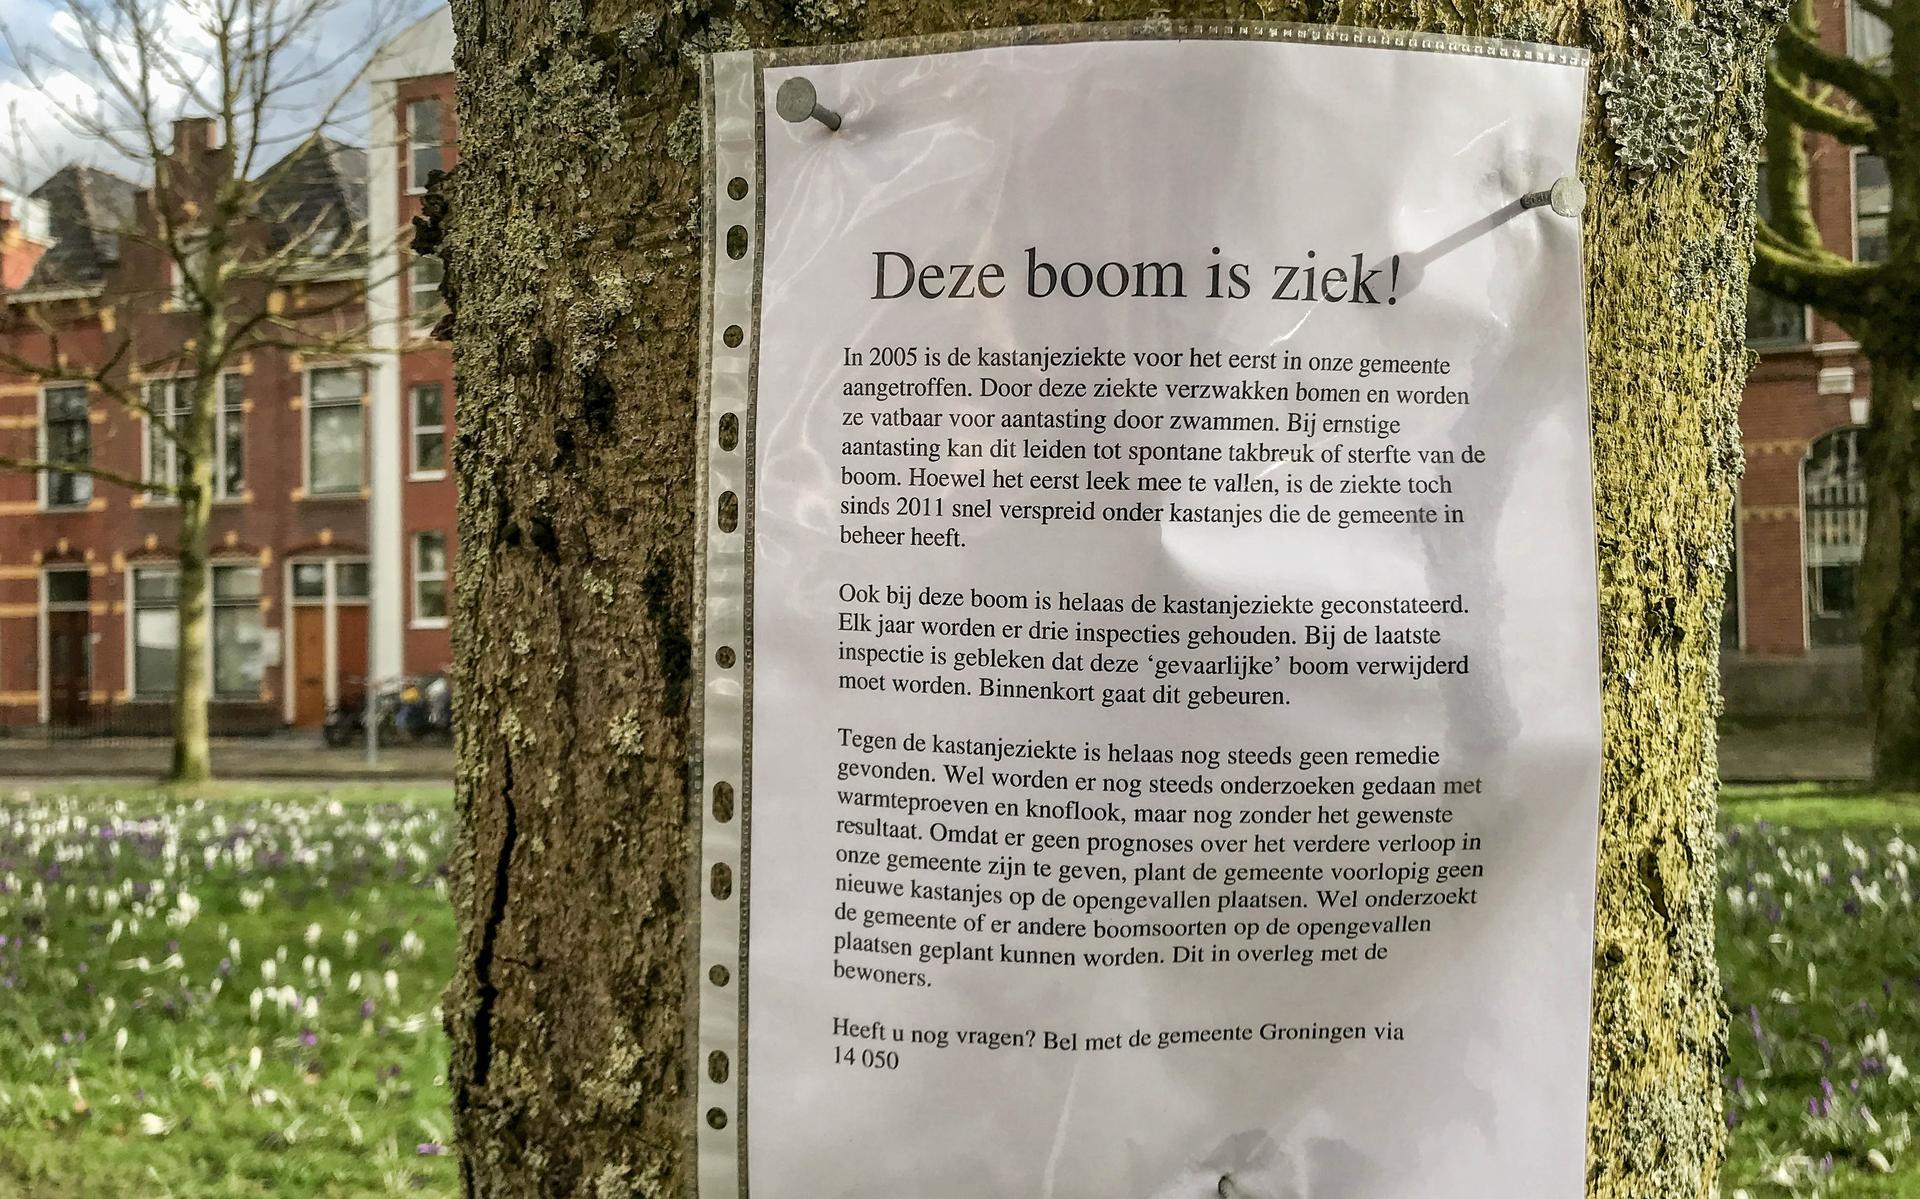 Deze boom is ziek!
In 2005 is de kastanjeziekte voor het eerst in onze gemeente
aangetroffen. Door deze ziekte verzwakken bomen en worden
ze vatbaar voor aantasting door zwammen. Bij ernstige
aantasting kan dit leiden tot spontane takbreuk of sterfte van de
boom. Hoewel het eerst leek mee te vallen, is de ziekte toch
sinds 2011 snel verspreid onder kastanjes die de gemeente in
beheer heeft.
Ook bij deze boom is helaas de kastanjeziekte geconstateerd.
Elk jaar worden er drie inspecties gehouden. Bij de laatste
inspectie is gebleken dat deze ‘gevaarlijke’ boom verwijderd
moet worden. Binnenkort gaat dit gebeuren.
Tegen de kastanjeziekte is helaas nog steeds geen remedie
gevonden. Wel worden er nog steeds onderzoeken gedaan met
warmteproeven en knoflook, maar nog zonder het gewenste
resultaat. Omdat er geen prognoses over het verdere verloop in
onze gemeente zijn te geven, plant de gemeente voorlopig geen
nieuwe kastanjes op de opengevallen plaatsen. Wel onderzoekt
de gemeente of er andere boomsoorten op de opengevallen
plaatsen geplant kunnen worden. Dit in overleg met de
bewoners.
Heeft u nog vragen? Bel met de gemeente Groningen via
14 050